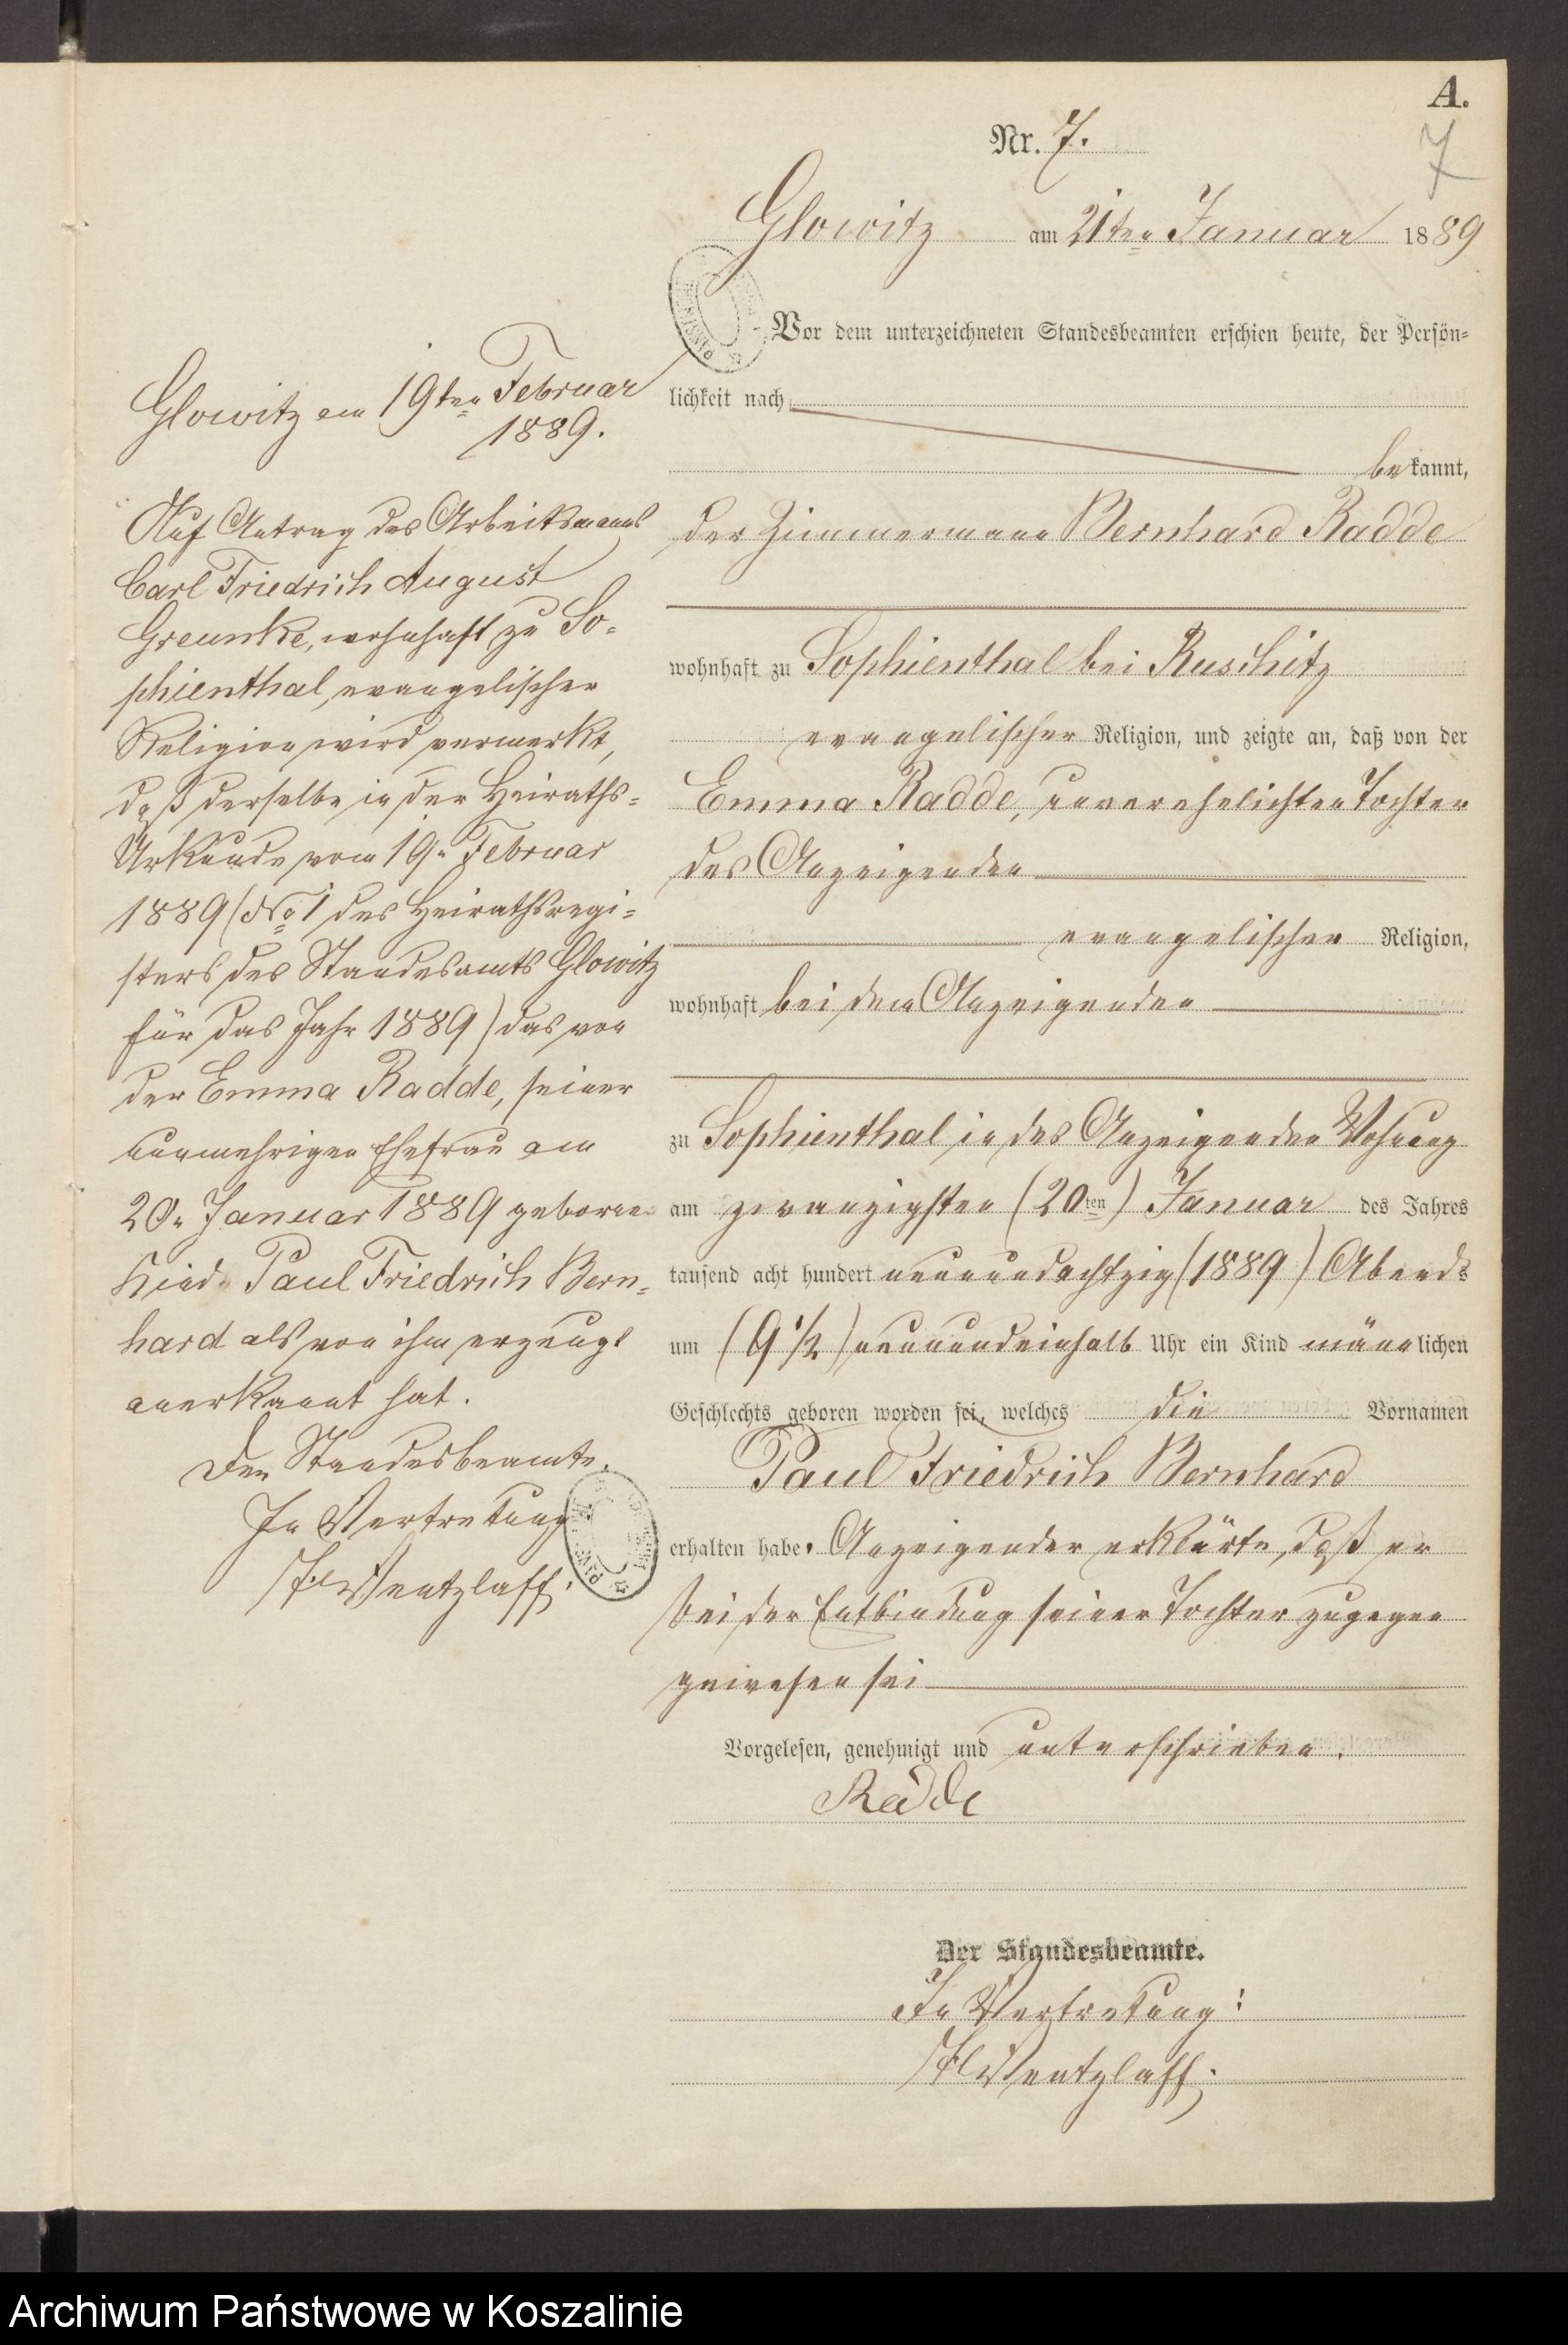 A.
7
Nr. 7.
Glowitz am 21ten Januar 1889
Vor dem unterzeichneten Standesbeamten erschien heute, der Persön-
lichkeit nach
bekannt,
der Zimmermann Bernhard Radde
wohnhaft zu Sophienthal bei Ruschitz
evangelischer Religion, und zeigte an, daß von der
Emma Radde, unverehelichten Tochter
des Anzeigenden
evangelischer Religion,
wohnhaft bei dem Anzeigenden
zu Sophienthal in des Anzeigenden Wohnung
am zwanzigsten (20ten) Januar des Jahres
tausend acht hundert neunundachtzig (1889) Abends
um (9 1/2) neunundeinhalb Uhr ein Kind männlichen
Geschlechts geboren worden sei, welches die Vornamen
Paul Friedrich Bernhard
erhalten habe. Anzeigender erklärte, daß er
bei der Entbindung seiner Tochter zugegen
gewesen sei
Vorgelesen, genehmigt und unterschrieben.
Radde
Der Standesbeamte.
In Vertretung:
Wentzlaff.
Glowitz am 19ten Februar
1889.
Auf Antrag des Arbeitsmanns
Carl Friedrich August
Greunke, wohnhaft zu So-
phienthal, evangelischer
Religion wird vermerkt,
daß derselbe in der Heiraths-
Urkunde vom 19n Februar
1889 (No 1 des Heirathsregi-
sters des Standesamts Glowitz
für das Jahr 1889) das von
der Emma Radde, seiner
nunmehrigen Ehefrau am
20n Januar 1889 geborene
Kind Paul Friedrich Bern-
hard als von ihm erzeugt
anerkannt hat.
Der Standesbeamte.
In Vertretung
Wentzlaff.
Archiwum Państwowe w Koszalinie